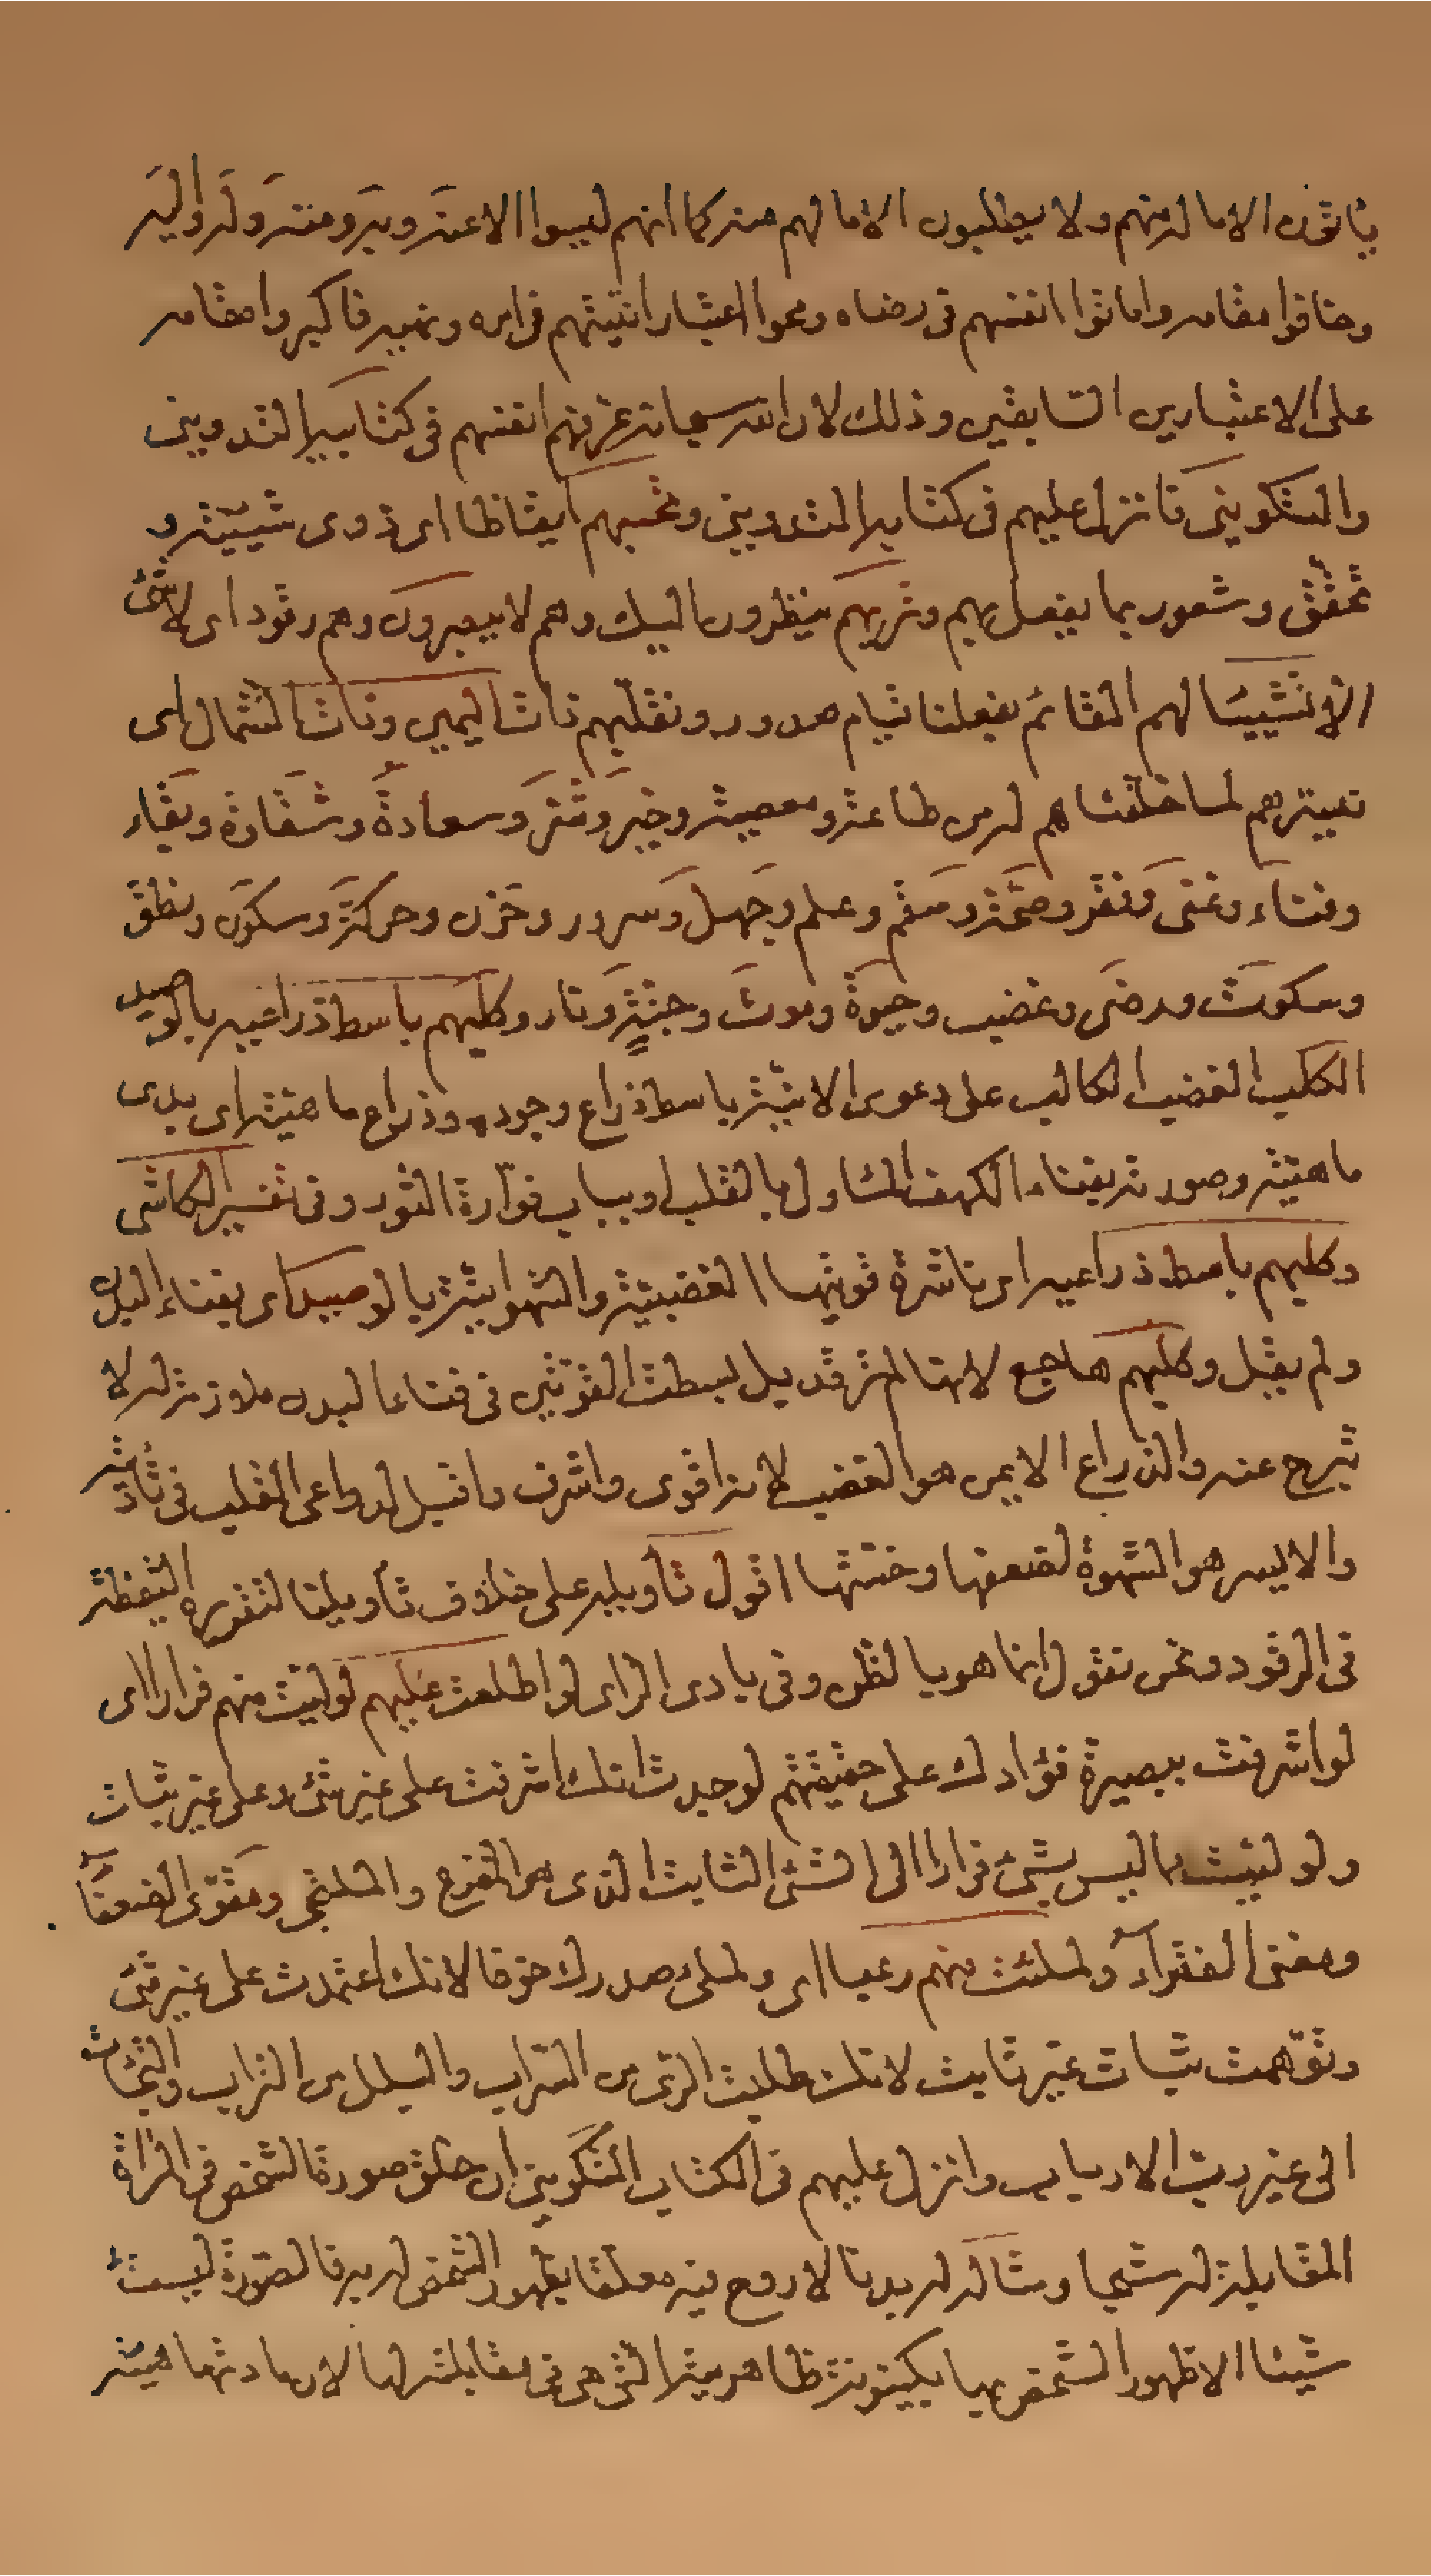 يأتون الا ما لهم منهم ولا يطلبون الا ما لهم منه كما انهم ليسوا الا عنه وبه ومنه وله واليه
وخافوا مقامه واماتوا انفسهم فى رضاه ومحوا اعتبار انيتهم فى امره ونهيه فاكبروا مقامه
على الاعتبارين السابقين وذلك لان الله سبحانه عرفهم انفسهم فى كتابيه التدوينى
والتكوينى فانزل عليهم فى كتابه التدوينى وتحسبهم ايقاظا اى ذوى شيئية و
تحقق وشعور بما يفعل بهم وتريهم ينظرون اليك وهم لا يبصرون وهم رقود اى لا شئ
الا تشيئنا لهم القائم بفعلنا قيام صدور ونقلبهم ذات اليمين وذات الشمال اى
نميزهم لما خلقناهم له من طاعة ومعصية وخير وشر وسعادة وشقاوة وبقاء
وفناء وغنى وفقر وصحة وسقم وعلم وجهل وسرور وحزن وحركة وسكون ونطق
وسكوت ورضى وغضب وحيوة وموت وجنة ونار وكلبهم باسط ذراعيه بالوصيد
الكلب الغضب الكالب على دعوى الانية باسط ذراع وجوده وذراع ماهيته اى يدى
ماهيته وصورته بفناء الكهف المأول بالقلب او بباب فوارة النور وفى تفسير الكاشى
وكلبهم باسط ذراعيه اى ناشرة قوتيها الغضبية والشهوانية بالوصيد اى بفناء البدن
ولم يقل وكلبهم هاجع لانها لم ترقد بل بسطت القوتين فى فناء البدن ملازمة له لا
تبرح عنه والذراع الايمن هو الغضب لانه اقوى واشرف واقبل لدواعى القلب فى تأديبه
والايسر هو الشهوة لضعفها وخستها اقول تأويله على خلاف تأويلنا لتقوره اليقظة
فى الرقود ونحن نقول انما هو بالظن وفى بادى الراى لو اطلعت عليهم لوليت منهم فرارا اى
لو اشرفت ببصيرة فؤادك على حقيقتهم لوجدت انك اشرفت على غير شئ وعلى غير ثبات
ولو ليت مما ليس بشئ فرارا الى الشئ الثابت الذى هو المفزع والملتجى ومقوى الضعفآء
ومغنى الفقرآء ولملئت منهم رعبا اى ولملئ صدرك خوفا لانك اعتمدت على غير شئ
وتوهمت ثبات غير ثابت لانك طلبت الرى من السراب والبلل من التراب والتجأت
الى غير رب الارباب وانزل عليهم فى الكتاب التكوينى ان خلق صورة الشخص فى المرآة
المقابلة له شبحا ومثالا له بدنا لا روح فيه معلقا بظهور الشخص له به فالصورة ليست
شيئا الا ظهور الشخص بها بكينونة ظاهريته التى هى فى مقابلته لها لان مادتها هيئة